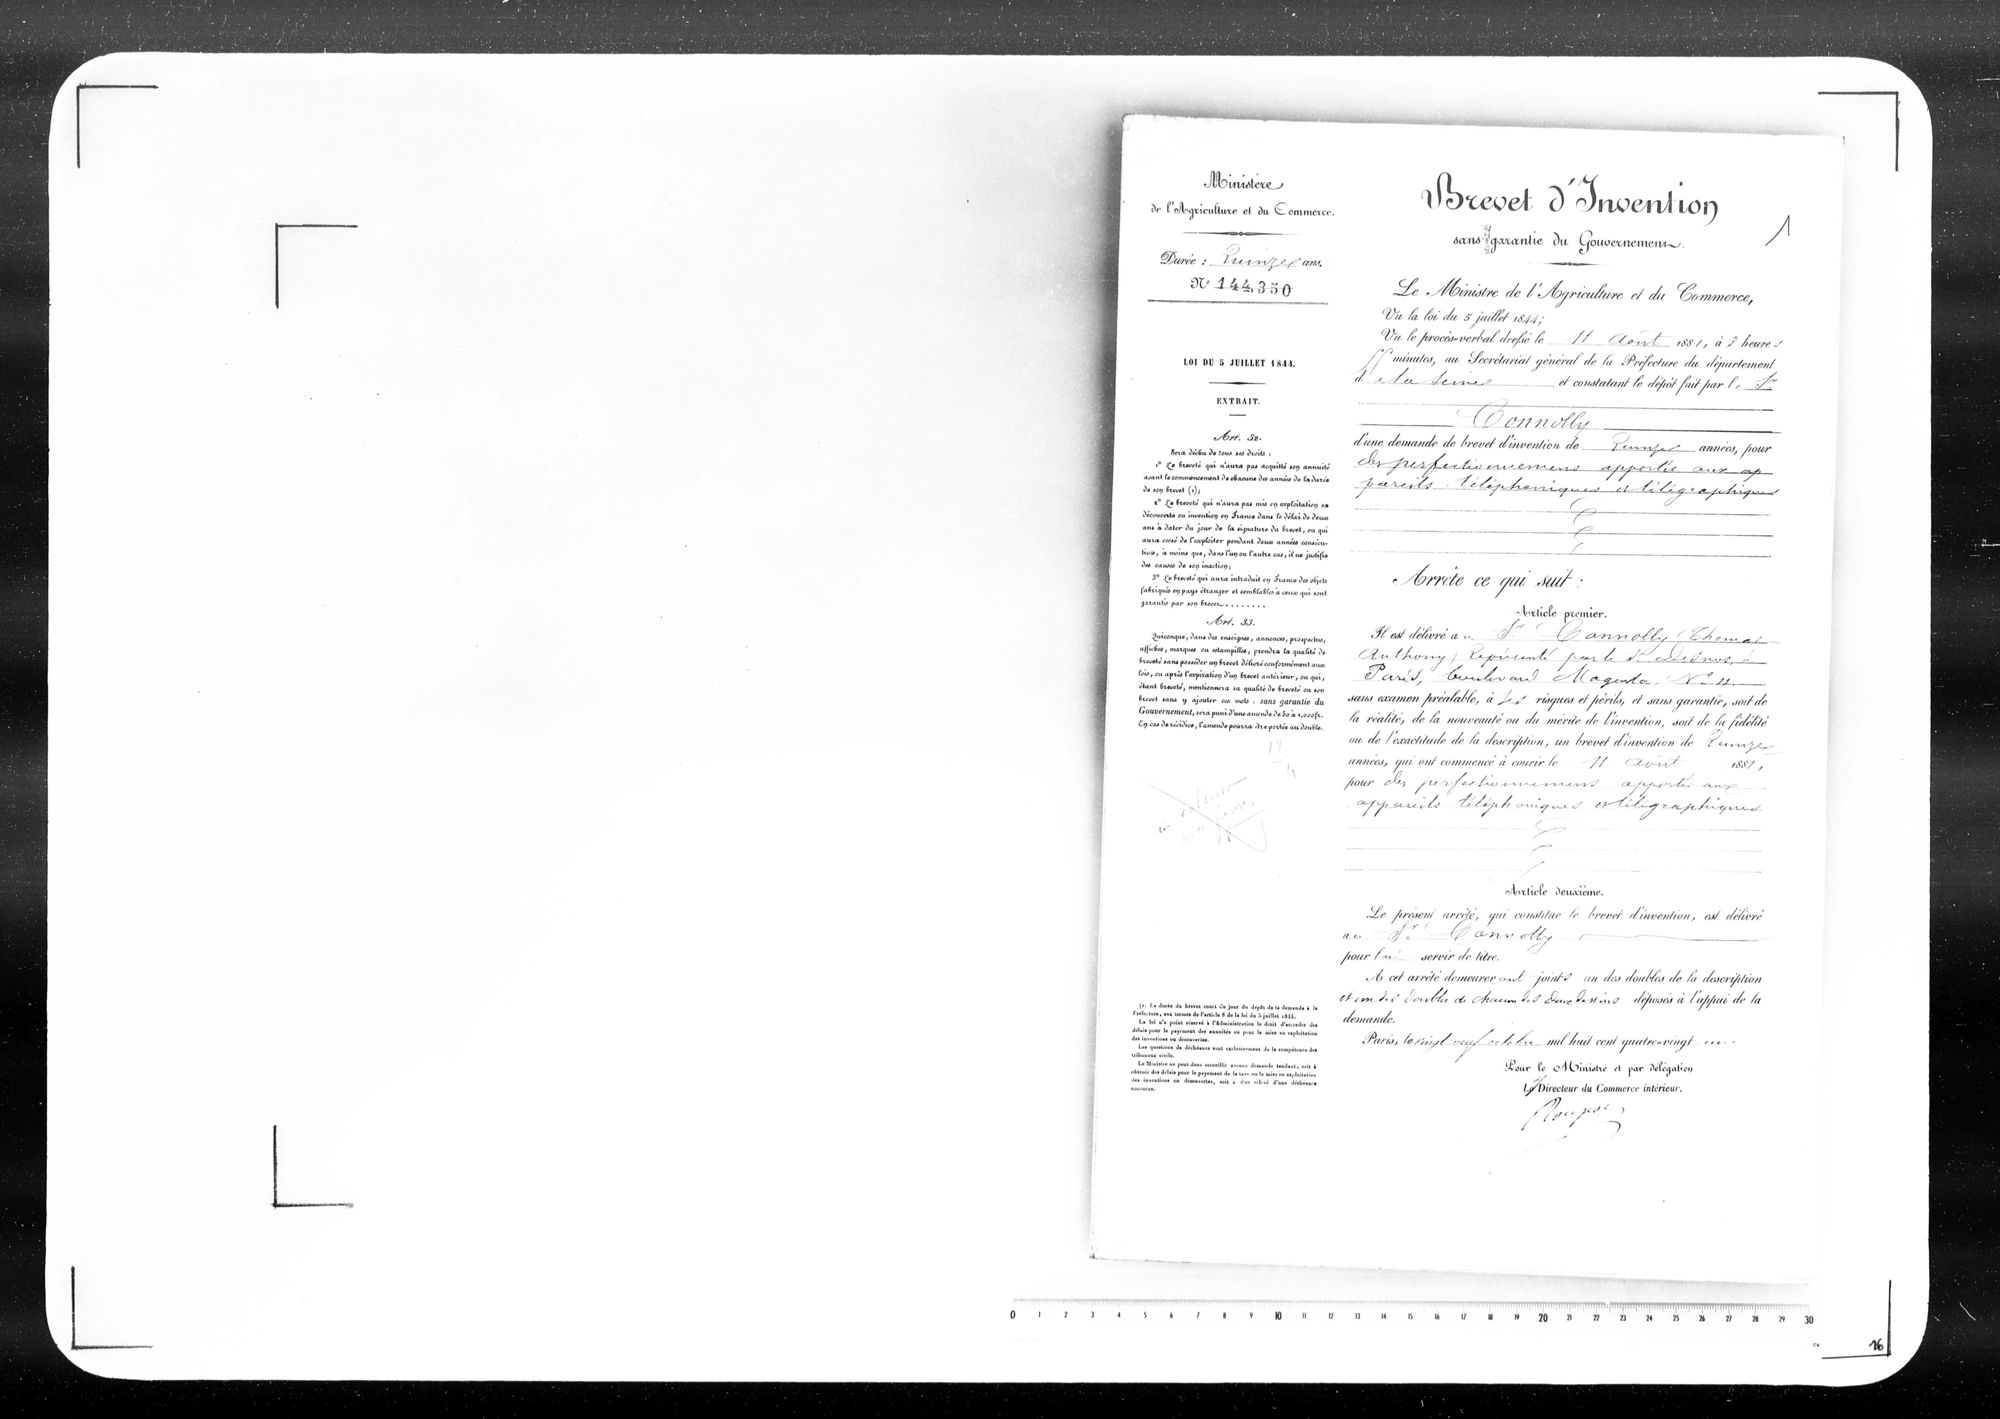 Ministère
de l'Agriculture et du Commerce.
Durée : Quinze ans.
N° 144,350
LOI DU 5 JUILLET 1844.
EXTRAIT.
Art. 32.
Sera déchu de tous ses droits :
1° Le breveté qui n'aura pas acquitté son annuité
avant le commencement de chacune des années de la durée
de son brevet (1);
2° Le breveté qui n'aura pas mis en exploitation sa
découverte ou invention en France dans le délai de deux
ans à dater du jour de la signature du brevet, ou qui
aura cessé de l'exploiter pendant deux années consécu-
tives, à moins que, dans l'un ou l'autre cas, il ne justifie
des causes de son inaction;
3° Le breveté qui aura introduit en France des objets
fabriqués en pays étranger et semblables à ceux qui sont
garantis par son brevet........
Art. 33.
Quiconque, dans des enseignes, annonces, prospectus,
affiches, marques ou estampilles, prendra la qualité de
breveté sans posséder un brevet délivré conformément aux
lois, ou après l'expiration d'un brevet antérieur, ou qui,
étant breveté, mentionnera sa qualité de breveté ou son
brevet sans y ajouter ces mots : sans garantie du
Gouvernement, sera puni d'une amende de 50 à 1,000 fr.
En cas de récidive, l'amende pourra être portée au double.
(1) La durée du brevet court du jour du dépôt de la demande à la
Préfecture, aux termes de l'article 8 de la loi du 5 juillet 1844.
La loi n'a point réservé à l'Administration le droit d'accorder des
délais pour le payement des annuités ou pour la mise en exploitation
des inventions ou découvertes.
Les questions de déchéance sont exclusivement de la compétence des
tribunaux civils.
Le Ministre ne peut donc accueillir aucune demande tendant, soit à
obtenir des délais pour le payement de la taxe ou la mise en exploitation
des inventions ou découvertes, soit à être relevé d'une déchéance
encourue.
Brevet d'Invention
sans garantie du Gouvernement.
1
Le Ministre de l'Agriculture et du Commerce,
Vu la loi du 5 juillet 1844;
Vu le procès-verbal dressé le 11 Août 1881, à 3 heures
minutes, au Secrétariat général de la Préfecture du département
de la Seine et constatant le dépôt fait par le Sr
Connolly
d'une demande de brevet d'invention de Quinze années, pour
des perfectionnements apportés aux ap
pareils téléphoniques et télégraphiques
Arrête ce qui suit :
Article premier.
Il est délivré au Sr Connolly (Thomas
Anthony) Représenté par le Sr Desnos, à
Paris, boulevard Magenta, N° 11
sans examen préalable, à ses risques et périls, et sans garantie, soit de
la réalité, de la nouveauté ou du mérite de l'invention, soit de la fidélité
ou de l'exactitude de la description, un brevet d'invention de Quinze
années, qui ont commencé à courir le 11 Août 1881,
pour des perfectionnements apportés aux
appareils téléphoniques et télégraphiques
Article deuxième.
Le présent arrêté, qui constitue le brevet d'invention, est délivré
au Sr Connolly
pour lui servir de titre.
A cet arrêté demeureront joints un des doubles de la description
et un des doubles de chacun des deux dessins déposés à l'appui de la
demande.
Paris, le vingt neuf octobre mil huit cent quatre-vingt un
Pour le Ministre et par délégation
Le Directeur du Commerce intérieur.
0 1 2 3 4 5 6 7 8 9 10 11 12 13 14 15 16 17 18 19 20 21 22 23 24 25 26 27 28 29 30
16